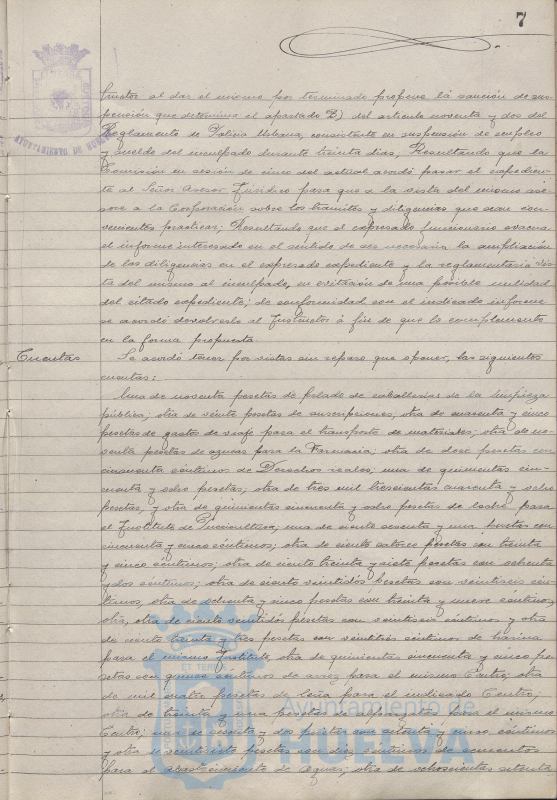 7
tructor al dar el mismo por terminado propone la sanción de sus-
pensión que determina el apartado B) del articulo noventa y dos del
Reglamento de Policia Urbana, consistente en suspensión de empleo
y sueldo del inculpado durante treinta dias; Resultando que la
Comisión en sesión de cinco del actual acordó pasar el expedien-
te al Señor Asesor Juridico para que a la vista del mismo ase-
sore a la Corporación sobre los trámites y diligencias que sean con-
venientes practicar; Resultando que el expresado funcionario evacua
el informe interesado en el sentido de ser necesaria la ampliación
de las diligencias en el expresado expediente y la reglamentaria vis-
ta del mismo al inculpado, en evitación de una posible nulidad
del citado expediente; de conformidad con el indicado informe
se acordó devolverlo al Instructor á fin de que lo complemente
en la forma propuesta.
Cuentas
Se acordó tener por vistas sin reparo que oponer, las siguientes
cuentas:
Una de noventa pesetas de pelado de caballerias de la limpieza
pública; otra de veinte pesetas de suscripciones, otra de cuarenta y cinco
pesetas de gastos de viaje para el transporte de materiales; otra de no-
venta pesetas de azucar para la Farmacia; otra de doce pesetas con
cincuenta céntimos de Derechos reales; una de quinientas cin-
cuenta y ocho pesetas; otra de tres mil trescientas cuarenta y ocho
pesetas, y otra de quinientas cincuenta y ocho pesetas de leche para
el Instituto de Puericultura; una de ciento sesenta y una pesetas con
cincuenta y cinco céntimos; otra de ciento catorce pesetas con treinta
y cinco céntimos; otra de ciento treinta y siete pesetas con ochenta
y dos céntimos; otra de ciento veintidós pesetas con veintiseis cén-
timos, otra de ochenta y cinco pesetas con treinta y nueve céntimos,
otra, otra de ciento veintidos pesetas con veintiseis céntimos y otra
de ciento treinta y tres pesetas con veintitres céntimos de harina
para el mismo Instituto, otra de quinientas cincuenta y cinco pe-
setas con quince céntimos de arroz para el mismo Centro, otra
de mil cuatro pesetas de leña para el indicado Centro;
otra de treinta y una pesetas de para el mismo
Centro; una de sesenta y dos pesetas con setenta y cinco céntimos
y otra de veintisiete pesetas con diez céntimos de cementos
para el abastecimiento de aguas; otra de ochocientas setenta
AYUNTAMIENTO DE HUELVA
Ayuntamiento de
HUELVA